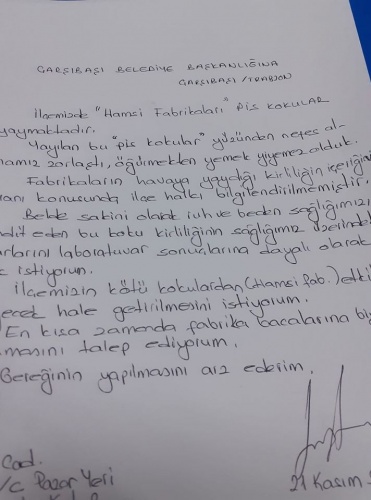 ÇARŞIBAŞI BELEDİYE BAŞKANLIĞINA
ÇARŞIBAŞI/TRABZON
İlçemizde "Hamsi Fabrikaları" PİS KOKULAR
yaymaktadır.
Yayılan bu "pis kokular" yüzünden nefes al-
mamız zorlaştı, öğürmekten yemek yiyemez olduk.
Fabrikaların havaya yaydığı kirliliğin içeriği
konusunda ilçe halkı bilgilendirilmemiştir.
Belde sakini olarak ruh ve beden sağlığımızı
dit eden bu koku kirliliğinin sağlığımız üzerindek
larını laboratuvar sonuçlarına dayalı olarak
istiyorum.
İlçemizin kötü kokulardan (Hamsi fab.) etki
ecek hale getirilmesini istiyorum.
En kısa zamanda fabrika bacalarına bi
masını talep ediyorum.
Gereğinin yapılmasını arz ederim.
Cad.
/c Pazar Yeri
21 Kasım